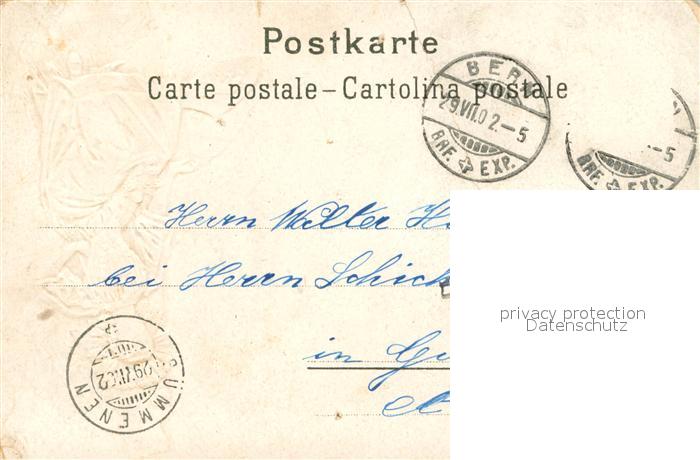 Postkarte
Carte postale – Cartolina postale
BERN
29.VII.02.–5
BRF. EXP.
–5
BRF. EXP.
Herrn Walter
bei Herrn Schick
in
privacy protection
Datenschutz
GÜMMENEN
29.VII.02